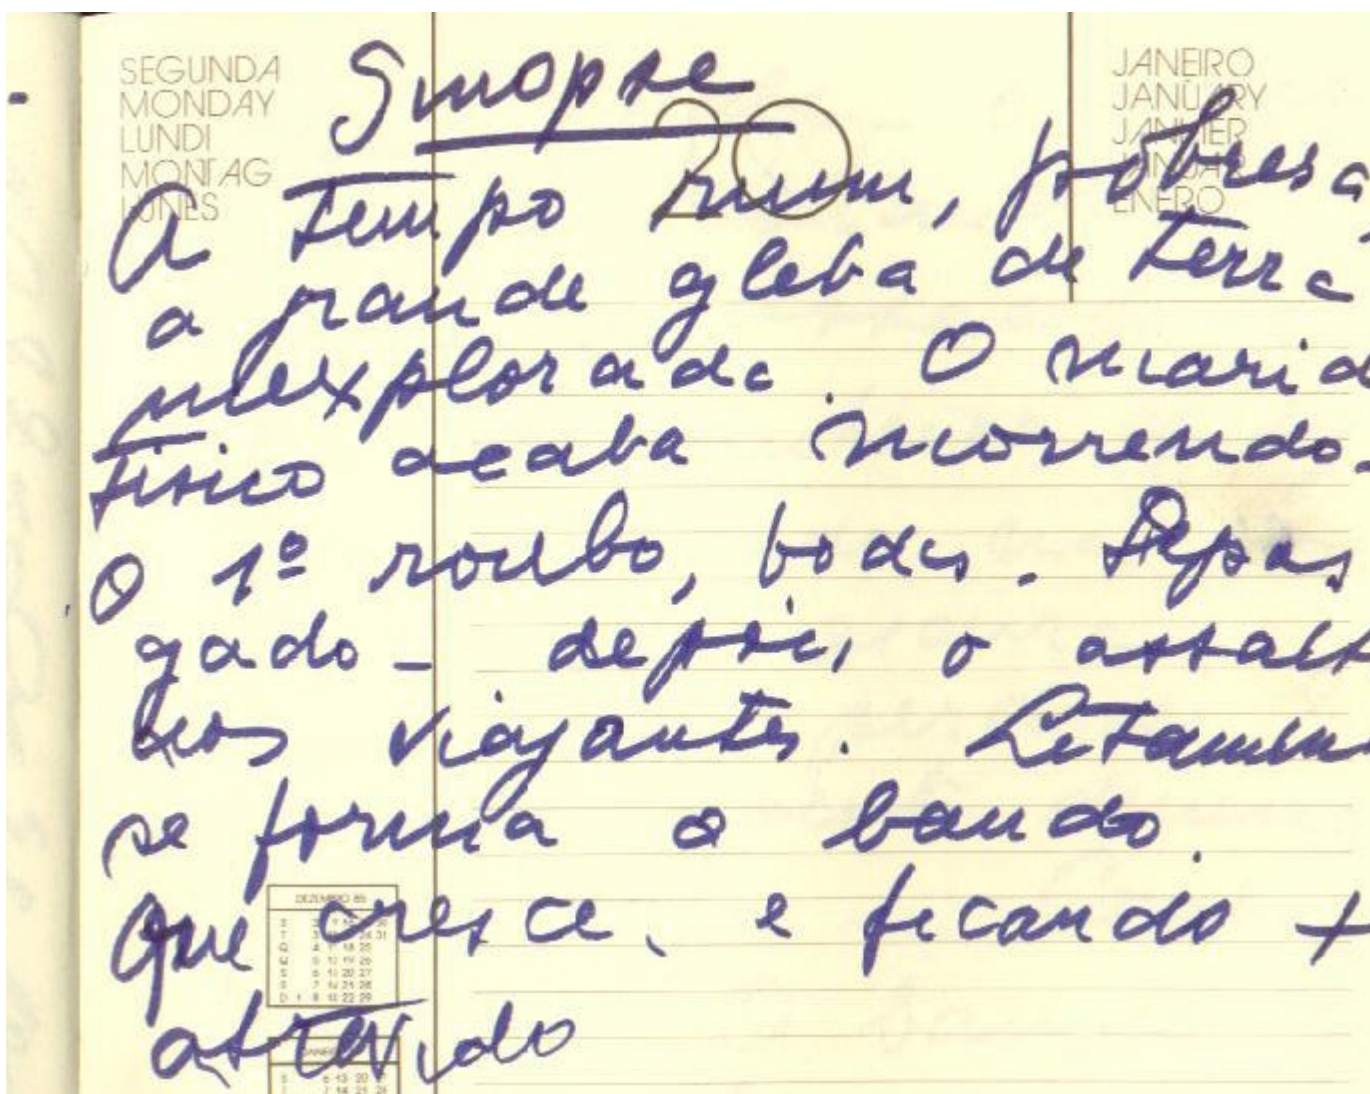 SEGUNDA
MONDAY
LUNDI
MONTAG
LUNES
20
JANEIRO
JANUARY
JANVIER
JANUAR
ENERO
Sinopse
A tempo ruim, pobresa,
a grande gleba de terra
inexplorada. O marid
tísico acaba morrendo.
O 1º roubo, bodes. Depois
gado - depois, o assalt
aos viajantes.
se forma o bando.
Que cresce, e ficando +
atrevido
DEZEMBRO 85